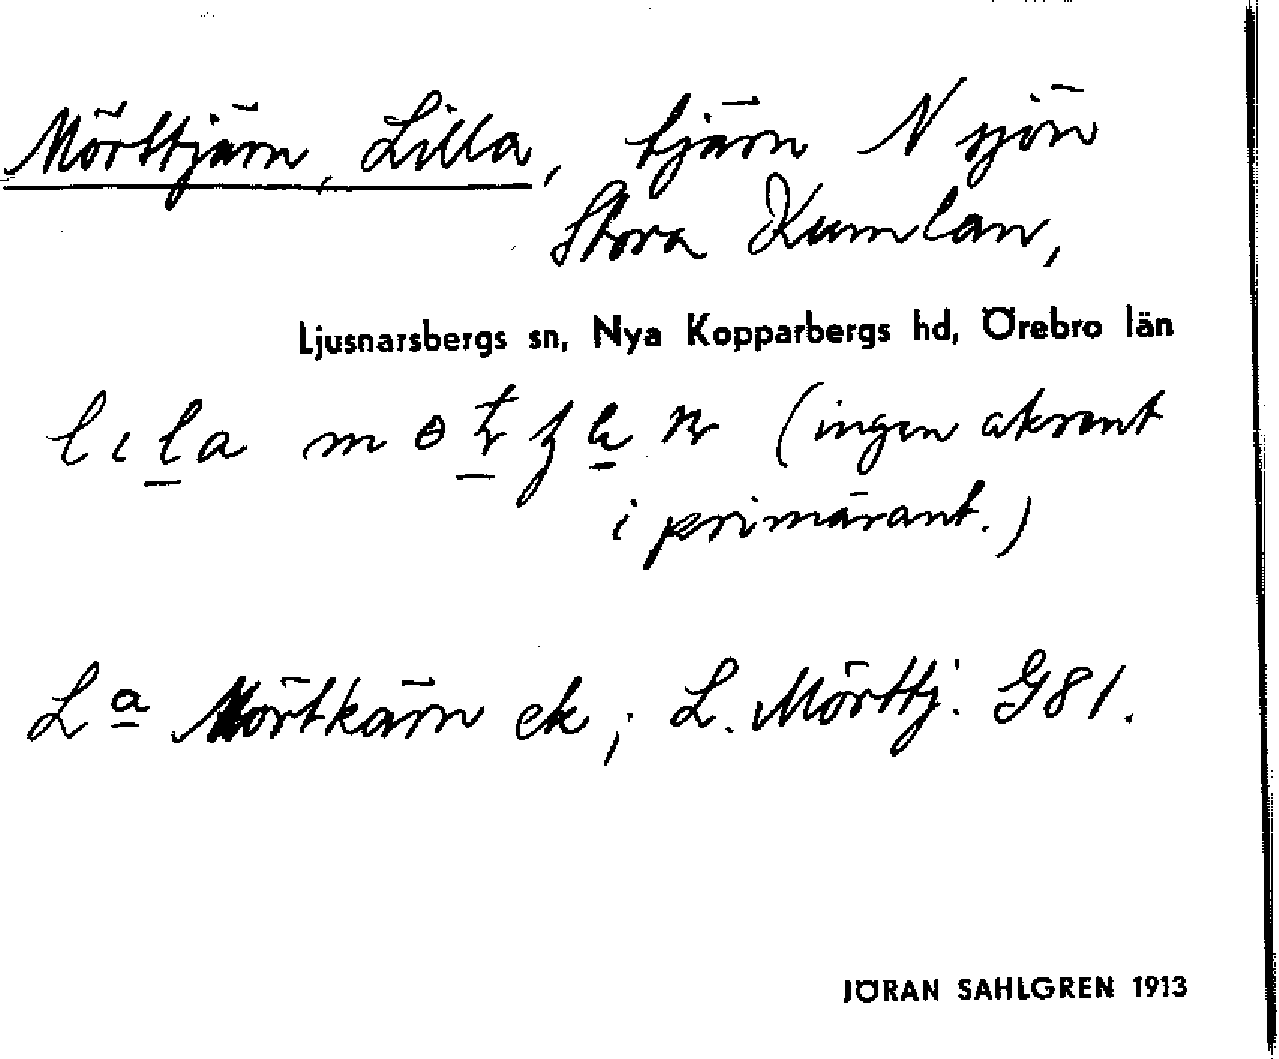 Mörttjärn, Lilla, tjärn N sjön
Stora Kumlan,
Ljusnarsbergs sn, Nya Kopparbergs hd, Örebro län
(ingen akcent
i primärant.)
L:a Mörtkärn ek; L. Mörttj. G81.
JÖRAN SAHLGREN 1913